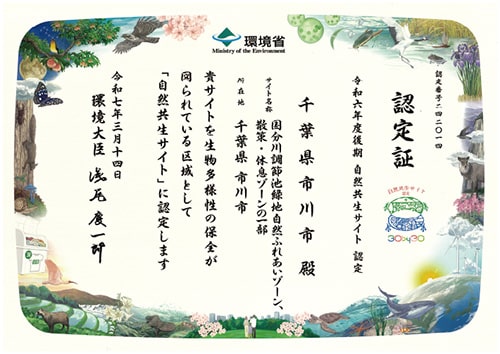 環境省
Ministry of the Environment
認定番号二四二〇一四
認定証
令和六年度後期 自然共生サイト 認定
自然共生サイト
認定
30by30
千葉県市川市 殿
サイト名称
国分川調節池緑地自然ふれあいゾーン、
散策・休息ゾーンの一部
所在地
千葉県市川市
貴サイトを生物多様性の保全が
図られている区域として
「自然共生サイト」に認定します
令和七年三月十四日
環境大臣 浅尾慶一郎